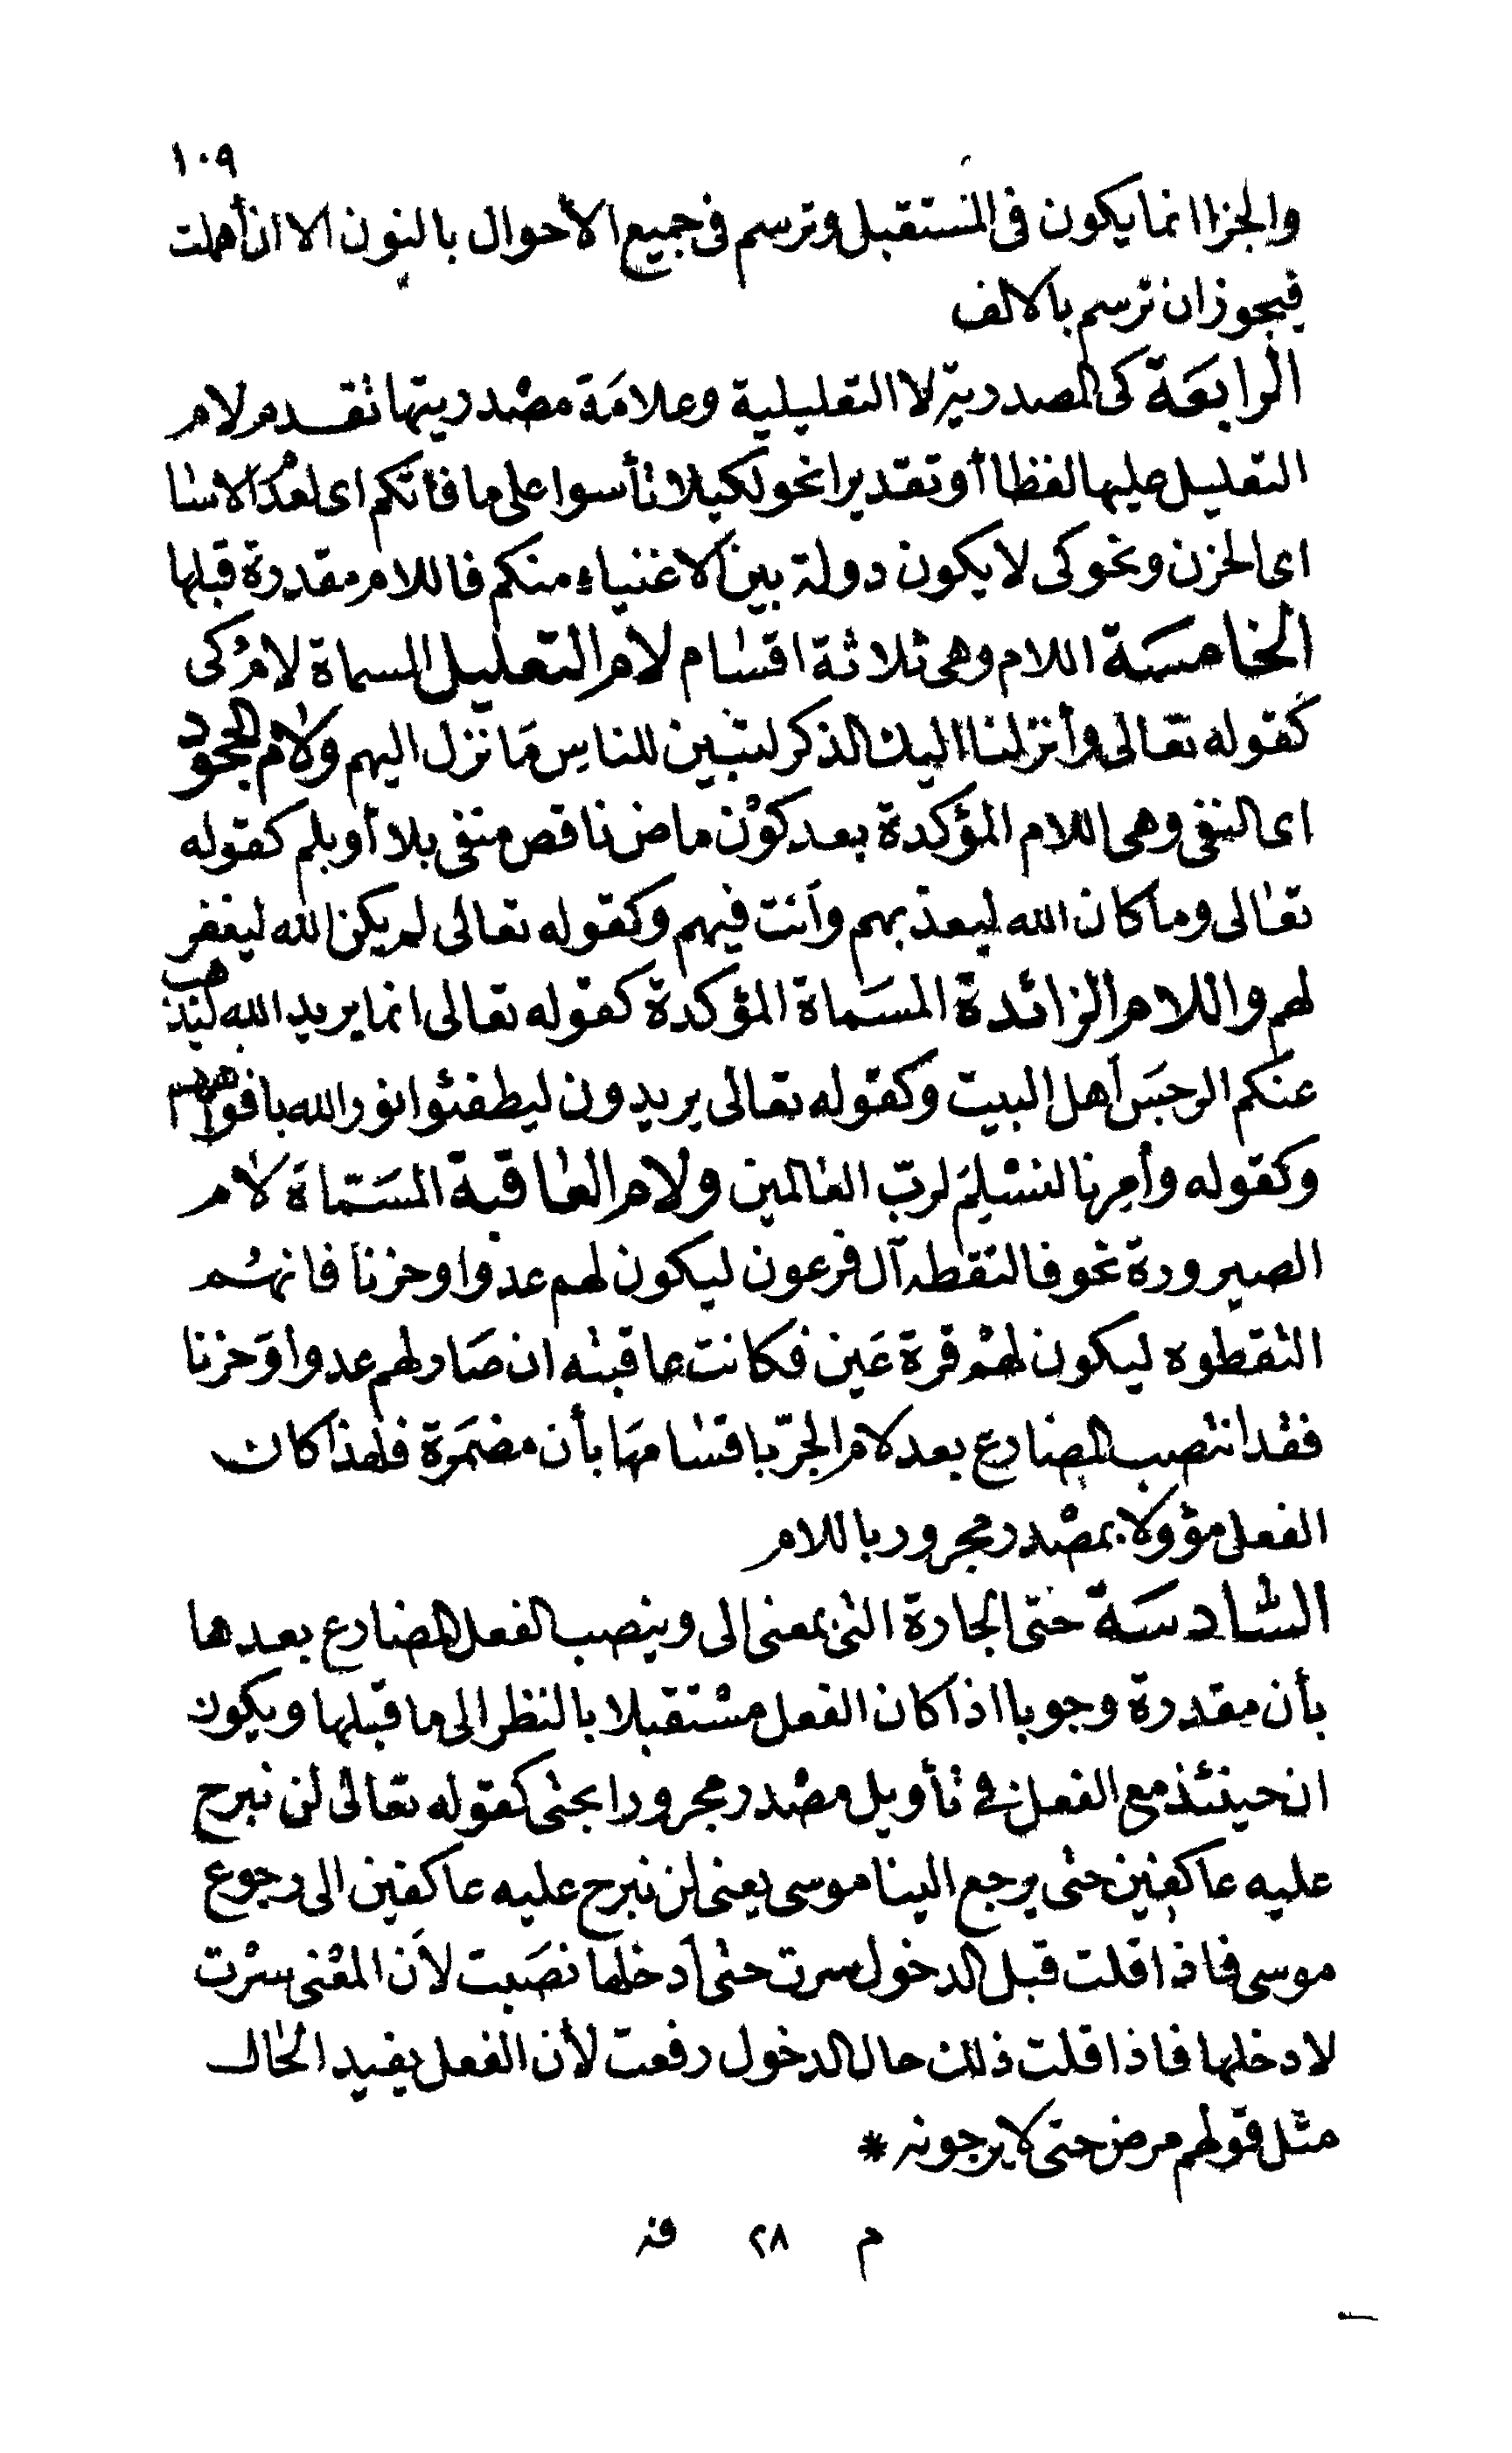 ١٠٩
والجزا انما يكون فى المستقبل وترسم فى جميع الأحوال بالنون الا ان أهملت
فيجوز ان ترسم بالالف
الرابعة كى المصدرية لا التعليلية وعلامة مصدريتها تقدم لام
التعليل عليها لفظا أو تقديرا نحو لكيلا تأسوا على ما فاتكم اى لعدم الاسا
اى الحزن ونحو كى لا يكون دولة بين الاغنياء منكم فاللام مقدرة قبلها
الخامسة اللام وهى ثلاثة اقسام لام التعليل المسماة لام كى
كقوله تعالى وأنزلنا اليك الذكر لتبين للناس ما نزل اليهم ولام الجحود
اى النفى وهى اللام المؤكدة بعد كون ماض ناقص منفى بلا أو بلم كقوله
تعالى وما كان الله ليعذبهم وأنت فيهم وكقوله تعالى لم يكن الله ليغفر
لهم واللام الزائدة المسماة المؤكدة كقوله تعالى انما يريد الله ليذهب
عنكم الرجس أهل البيت وكقوله تعالى يريدون ليطفئوا نور الله بافواههم
وكقوله وأمرنا لنسلم لربّ العالمين ولام العاقبة المسمّاة لام
الصيرورة نحو فالتقطه آل فرعون ليكون لهم عدوا وحزنا فانهم
التقطوه ليكون لهم قرة عين فكانت عاقبته ان صار لهم عدوا وحزنا
فقد انتصب المضارع بعد لام الجرّ باقسامها بأن مضمرة فلهذا كان
الفعل مؤولا بمصدر مجرور باللام
السادسة حتى الجارة التى بمعنى الى وينصب الفعل المضارع بعدها
بأن مقدرة وجوبا اذا كان الفعل مستقبلا بالنظر الى ما قبلها ويكون
ان حينئذ مع الفعل فى تأويل مصدر مجرورا بحتى كقوله تعالى لن نبرح
عليه عاكفين حتى يرجع الينا موسى يعنى لن نبرح عليه عاكفين الى رجوع
موسى فاذا قلت قبل الدخول سرت حتى أدخلها نصبت لأن المعنى سرت
لادخلها فاذا قلت ذلك حال الدخول رفعت لأن الفعل يفيد الحال
مثل قولهم مرض حتى لا يرجونه *
م ٢٨ قنـ